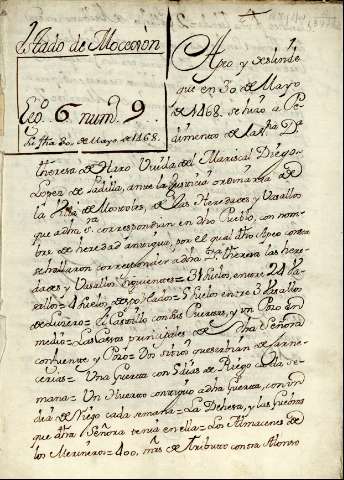 Estado de Mocorón
Leg.º 6 num.º 9
fha 30. de Mayo de 1468.
Apeo y deslinde
que en 30 de Mayo
de 1468. se hizo a Pe-
dimento de la Sra. D.ª
theresa de Haro Viuda del Mariscal Diego
Lopez de Padilla, ante la Justicia ordinaria de
la Villa de de las Heredades y Vasallos
que a dha s.ra correspondian en dho Pueblo, con nom-
bre de heredad antigua, por el qual dho Apeo consta
se hallaron corresponder a dha theresa las here-
dades y Vasallos siguientes = 31 suelos, entre 24 Va-
sallos = 4 suelos despoblados = 5 suelos entre 3 Vasallos
de = el Castillo con sus Cuestas, y un Pozo en
medio = Las Casas principales de dha Señora
con fuente y Pozo = Un sitio que servian de carne-
cerias = Una Guerta con 5 dias de Riego cada se-
mana = Un Huerto contiguo a dha Guerta, con un
dia de Riego cada semana = La Dehesa, y las
que dha Señora tenia en ella = Los Almacenes de
los = 400. mrs de tributo contra Alonso